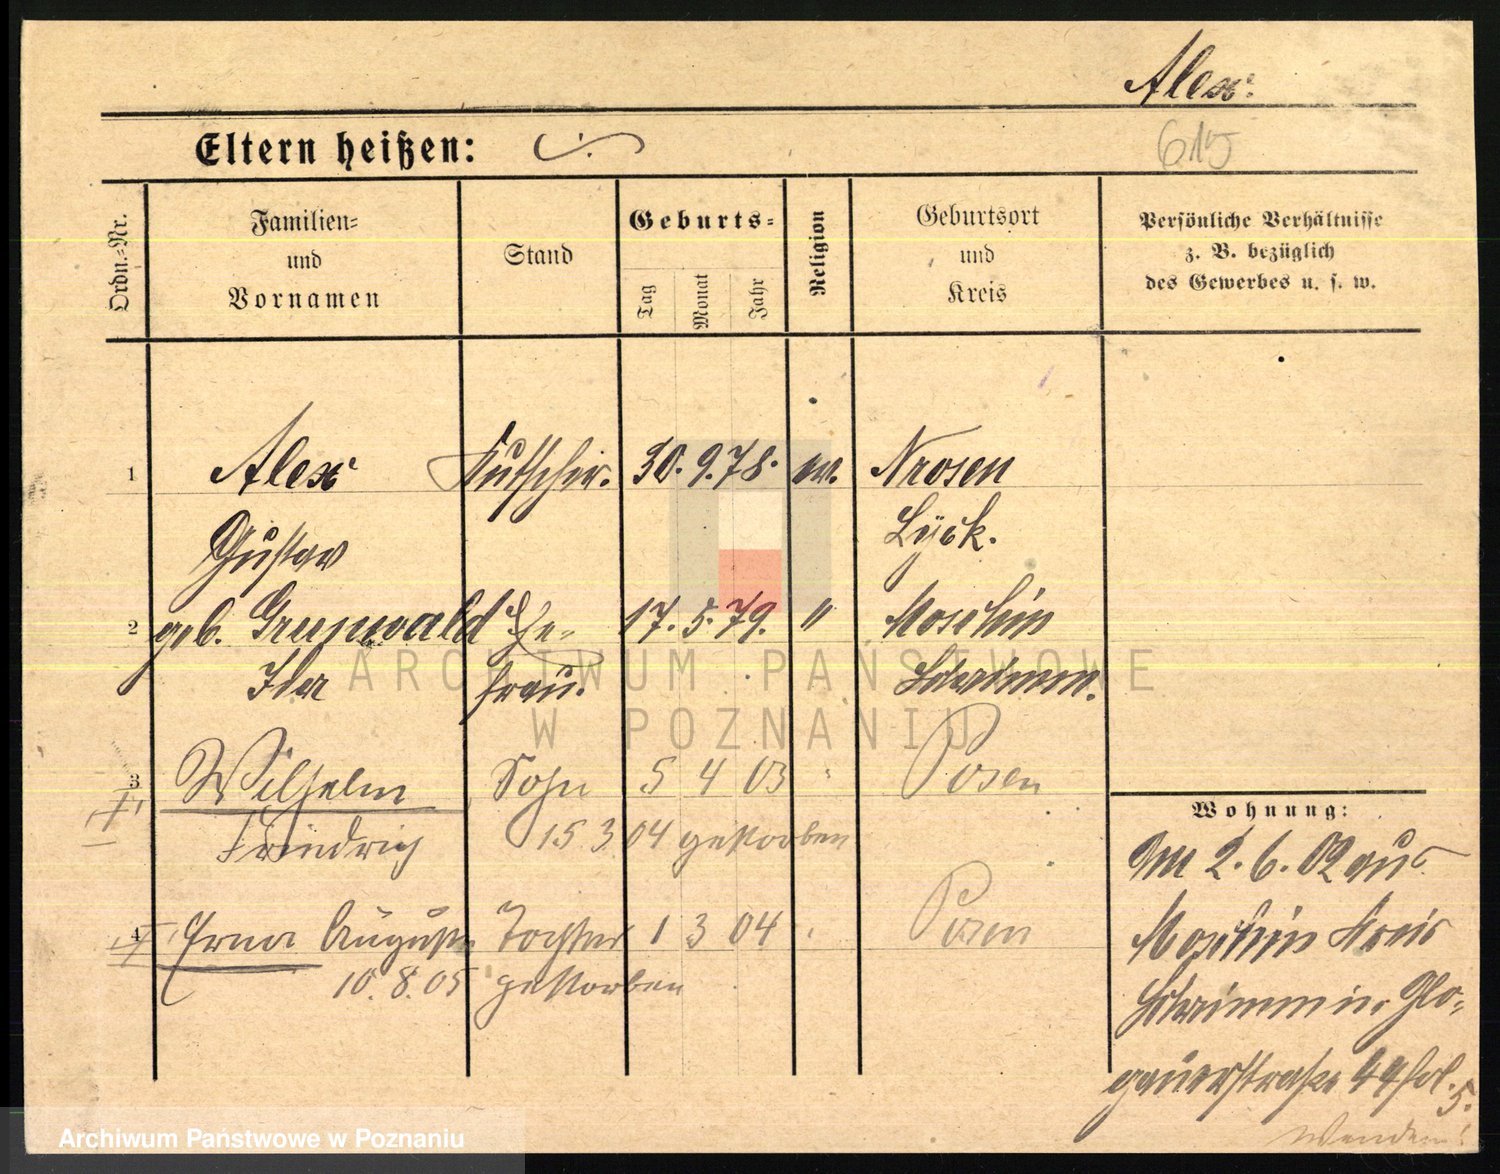 Alex.
Eltern heißen:
615
Ordn.-Nr.
Familien-
und
Vornamen
Stand
Geburts-
Tag
Monat
Jahr
Religion
Geburtsort
und
Kreis
Persönliche Verhältnisse
z. B. bezüglich
des Gewerbes u. s. w.
1 Alex Kutscher. 30. 9. 78. ev.
Gustav Lyck.
2 geb. Grunwald Ehe- 17. 5. 79. " Moschin
Ida frau. Schrimm.
3 Wilhelm Sohn 5 4 03 Posen
Friedrich 15 3 04 gestorben
4 Erna Auguste Tochter 1 3 04 Posen
10. 8. 05 gestorben
Wohnung:
Am 2. 6. 02 aus
Moschin Kreis
Schrimm in Glo-
gauerstraße 44
Wenden!
ARCHIWUM PAŃSTWOWE
W POZNANIU
Archiwum Państwowe w Poznaniu